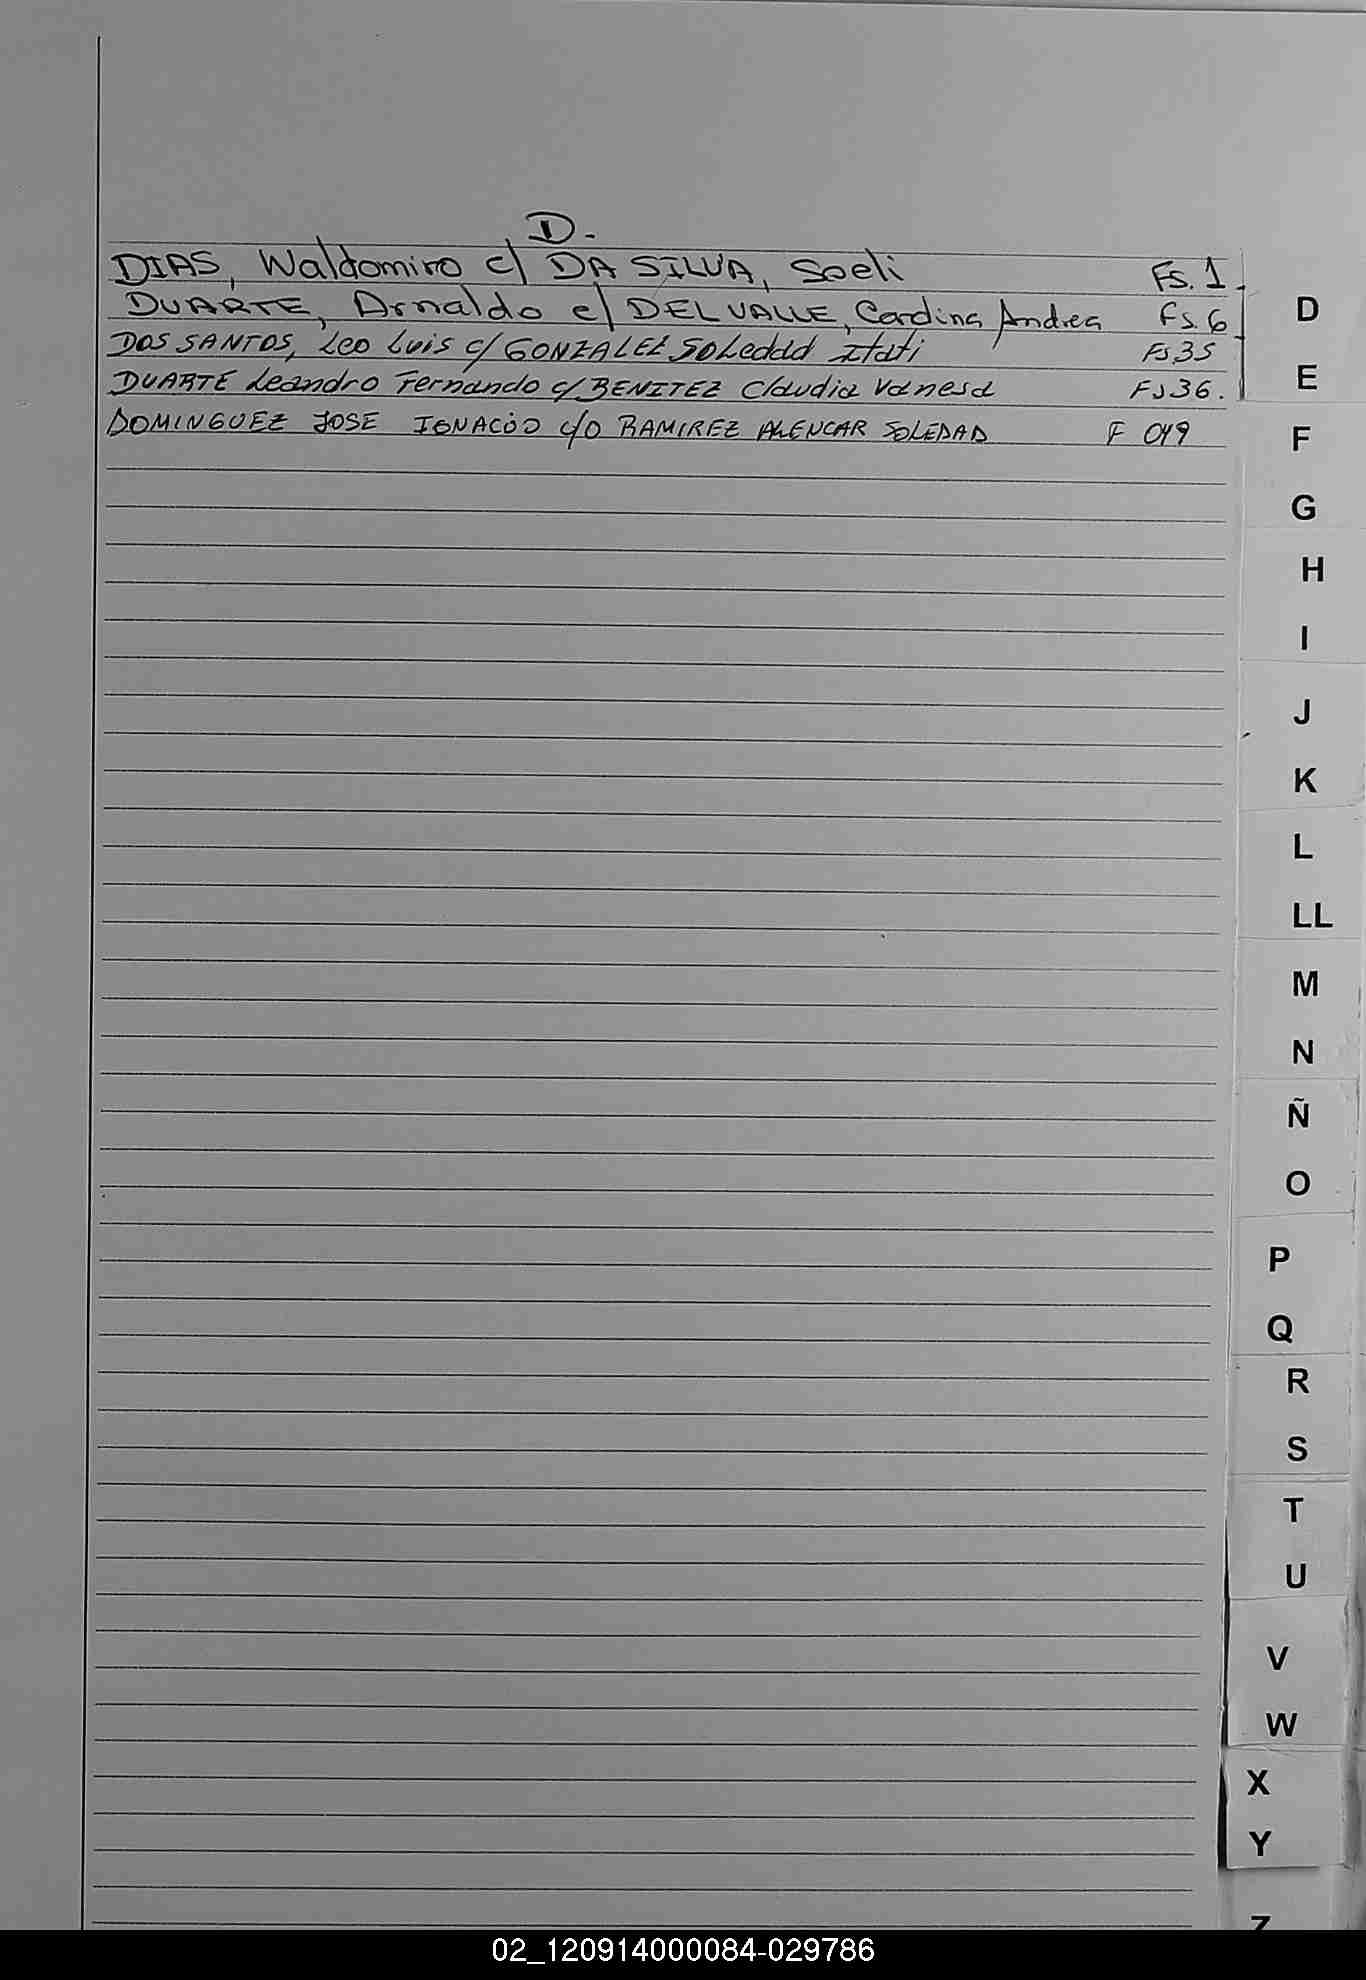 D.
DIAS, Waldomiro c/ DA SILVA, Soeli Fs. 1.
DUARTE, Arnaldo c/ DEL VALLE, Carolina Andrea Fs. 6
DOS SANTOS, Leo Luis c/ GONZALEZ SOLedad Itati Fs 35
DUARTE Leandro Fernando c/ BENITEZ Claudia Vanesa Fs 36.
DOMINGUEZ JOSE IGNACIO c/o RAMIREZ ALENCAR SOLEDAD F 049
D
E
F
G
H
I
J
K
L
LL
M
N
Ñ
O
P
Q
R
S
T
U
V
W
X
Y
Z
02_120914000084-029786